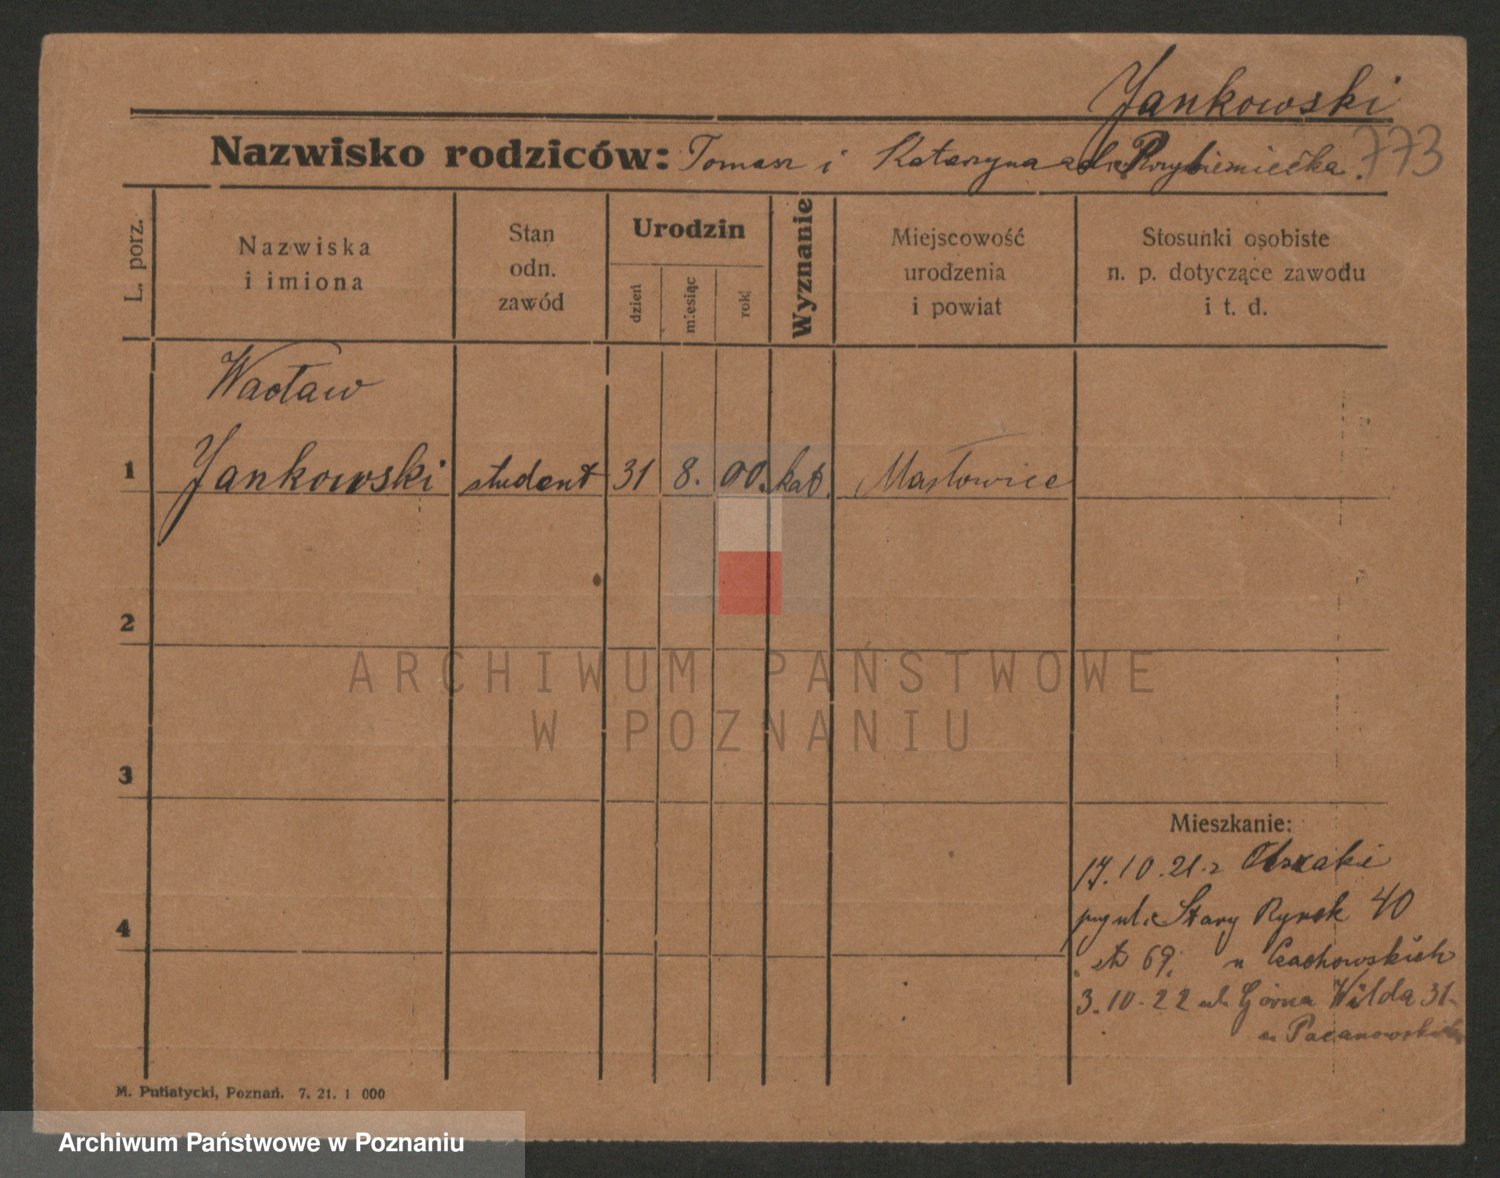 Jankowski
Nazwisko rodziców: Tomasz i Katarzyna
773
L. porz.
Nazwiska
i imiona
Stan
odn.
zawód
Urodzin
dzień
miesiąc
rok
Wyznanie
Miejscowość
urodzenia
i powiat
Stosunki osobiste
n. p. dotyczące zawodu
i t. d.
Wacław
1 Jankowski student 31 8. 00. kat. Masłowice
2
ARCHIWUM PAŃSTWOWE
W POZNANIU
3
Mieszkanie:
17.10.21. z
Stary Rynek 40
4
69. u Czachowskich
3.10.22 ul. Górna Wilda 31
u
M. Putiatycki, Poznań. 7. 21. 1 000
Archiwum Państwowe w Poznaniu